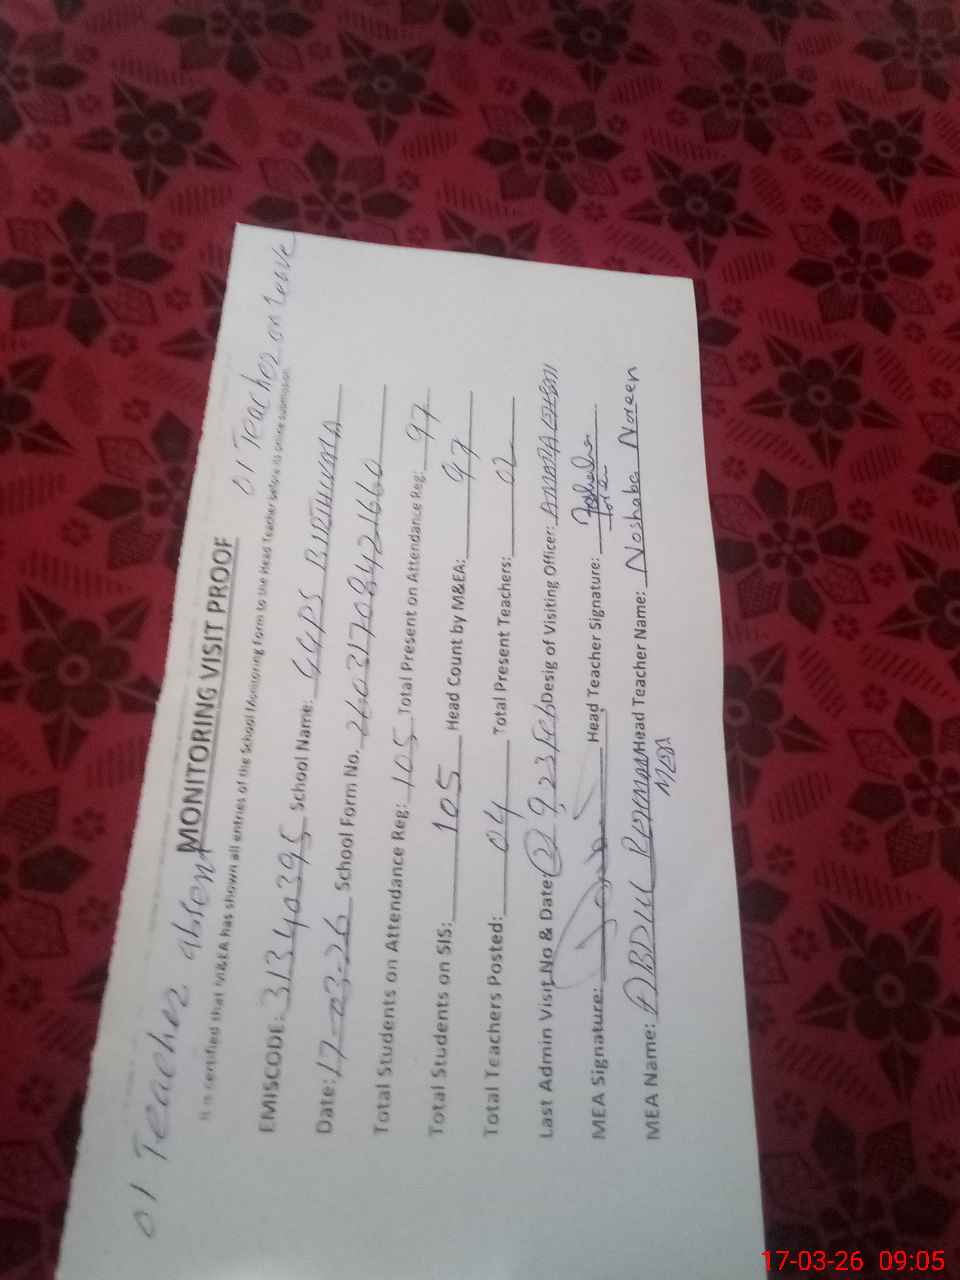 01 Teacher absent
01 Teacher on Leave
MONITORING VISIT PROOF
It is certified that M&EA has shown all entries of the School Monitoring Form to the Head Teacher before its online submission.
EMISCODE: 31340395 School Name: GGPS
Date: 17-03-26 School Form No. 26031708421660
Total Students on Attendance Reg: 105 Total Present on Attendance Reg: 97
Total Students on SIS: 105 Head Count by M&EA: 97
Total Teachers Posted: 04 Total Present Teachers: 02
Last Admin Visit No & Date 23 Feb Desig of Visiting Officer:
MEA Signature: Head Teacher Signature:
MEA Name: ABDUL REHMAN Head Teacher Name: Noshaba Noreen
MEA
17-03-26 09:05